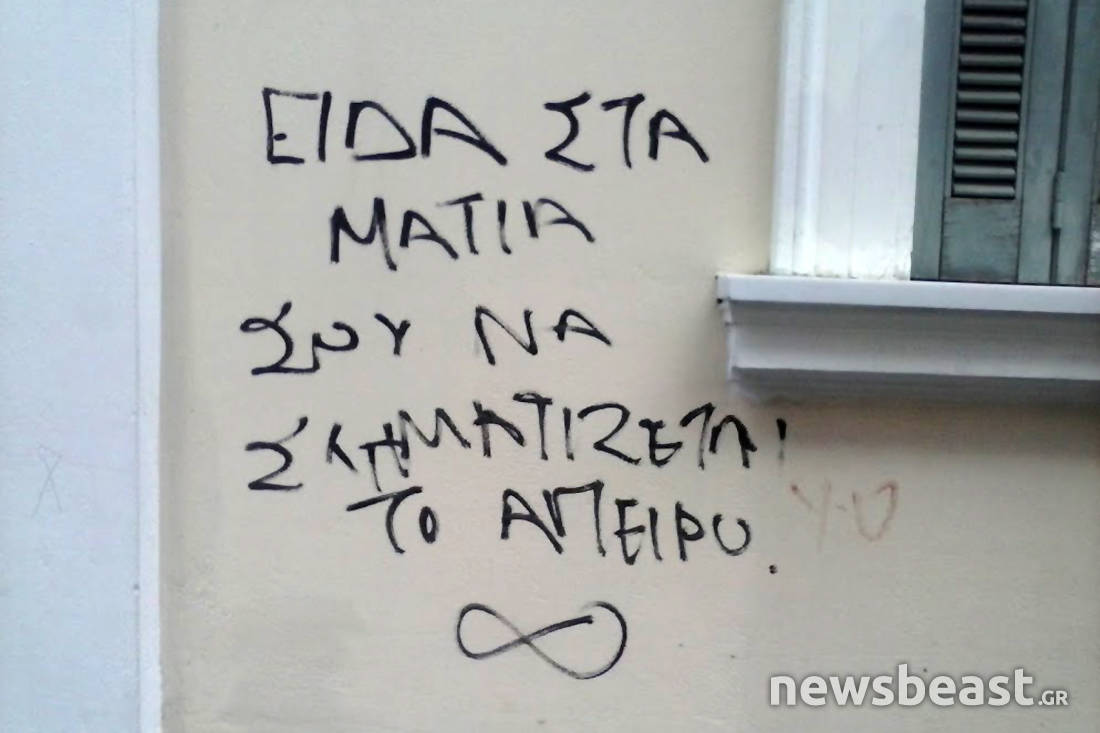 ΕΙΔΑ ΣΤΑ
ΜΑΤΙΑ
ΣΟΥ ΝΑ
ΣΧΗΜΑΤΙΖΕΤΑΙ
ΤΟ ΑΠΕΙΡΟ.
∞
newsbeast.GR